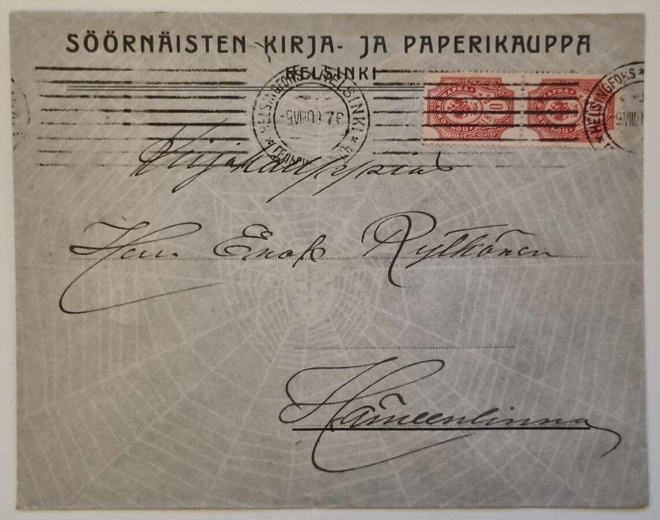 SÖÖRNÄISTEN KIRJA- JA PAPERIKAUPPA
HELSINKI
HELSINGFORS HELSINKI
-9VIII0 7P
HELSINGFORS
Kirjakauppias
Herr. Enok Rytkönen
Hämeenlinna